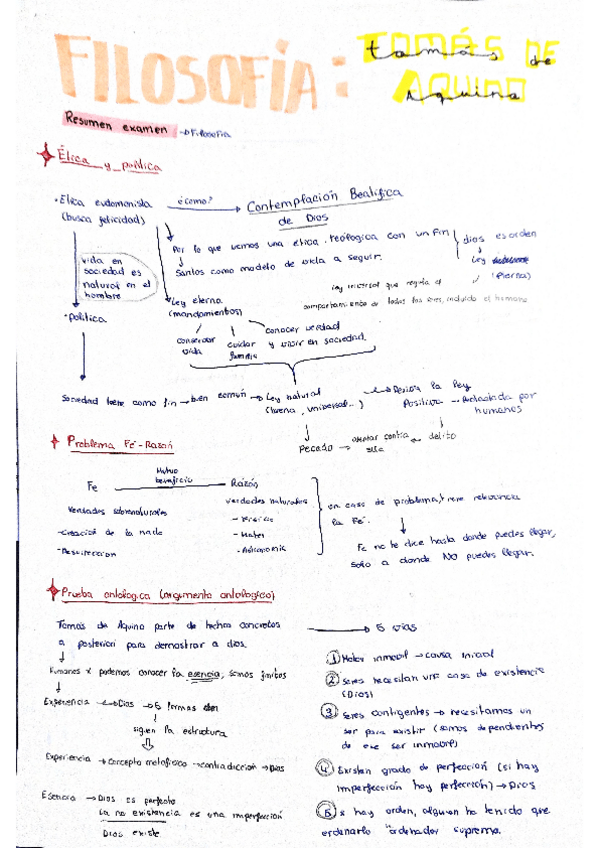 FILOSOFÍA: TOMÁS DE AQUINO
tomás de Aquino
Resumen examen → Filosofía
Ética y política
· Etica eudomonista ¿como? → Contemplación Beatífica
(busca felicidad) de Dios
Por lo que vemos una etica teologica con un fin
dios es orden
↓
Santos como modelo de vida a seguir.
Ley
(eterna)
vida en
sociedad es
natural en el
hombre
ley universal que regula el
comportamiento de todos los seres, incluido el humano
Ley eterna
(mandamientos)
· política
conservar vida
cuidar familia
conocer verdad
y vivir en sociedad.
Sociedad tiene como fin → bien común → Ley natural
(buena, universal...)
→ Deriva la ley
Positiva → Redactada por
humanos
↓
Pecado → atentar contra ella
delito
Problema Fé - Razón
Fe Mutuo beneficio Razón
Verdades sobrenaturales
verdades naturales
- Creación de la nada
- Resurrección
- Física
- Mates
- Astronomia
en caso de problema, tiene relevancia
la Fé.
↓
Fe no te dice hasta donde puedes llegar,
solo a donde NO puedes llegar.
Prueba ontologica (argumento ontologico)
Tomás de Aquino parte de hechos concretos
a posteriori para demostrar a dios.
→ 5 vias
↓
Humanos x podemos conocer la esencia, somos finitos
↓
Experiencia → Dios → 5 formas
↓
siguen la estructura
Experiencia → concepto metafísico → contradicción → Dios
Esencia → Dios es perfecto
La no existencia es una imperfección
Dios existe.
① Motor inmovil → causa inicial
② Seres necesitan una causa de existencia
(Dios)
③ Seres contigentes → necesitamos un
ser para existir (somos dependientes
de ese ser inmovil)
④ Existen grado de perfección (si hay
imperfección hay perfección) → Dios
⑤ Si hay orden, alguien ha tenido que
ordenarlo "ordenador supremo.